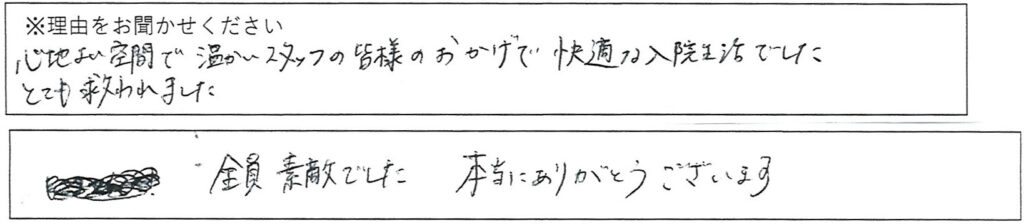 ※理由をお聞かせください
心地よい空間で 温かいスタッフの皆様のおかげで 快適な入院生活でした
とても救われました
全員 素敵でした 本当にありがとうございます